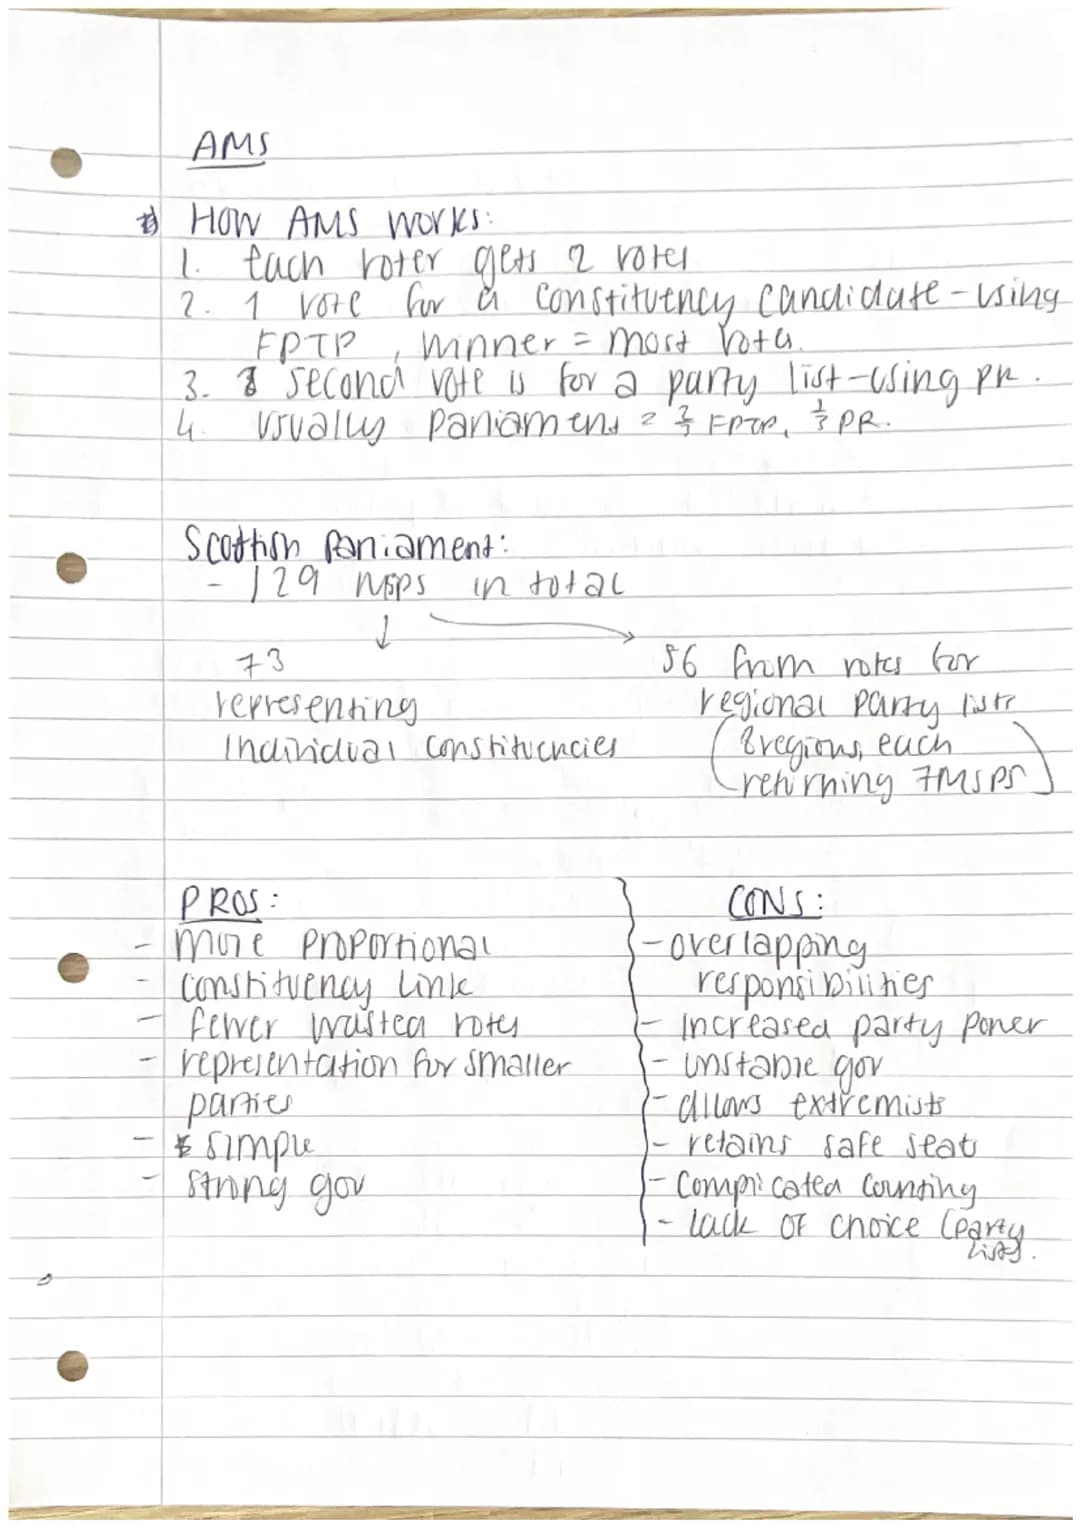 AMS
How AMS works:
1. Each voter gets 2 votes
2. 1 vote for a constituency candidate - using
FPTP, winner = most votes.
3. second vote is for a party list - using PR.
4. Usually parliament = 2/3 FPTP, 1/3 PR.
Scottish Parliament:
- 129 MSPs in total
↓ →
73
representing
individual constituencies
56 from votes for
regional party lists
(8 regions, each
returning 7 MSPs)
PROS:
- more proportional
- constituency link
- fewer wasted votes
- representation for smaller
parties
- simple
- strong gov
CONS:
- overlapping
responsibilities
- increased party power
- unstable gov
- allows extremists
- retains safe seats
- complicated counting
- lack of choice (party
lists).